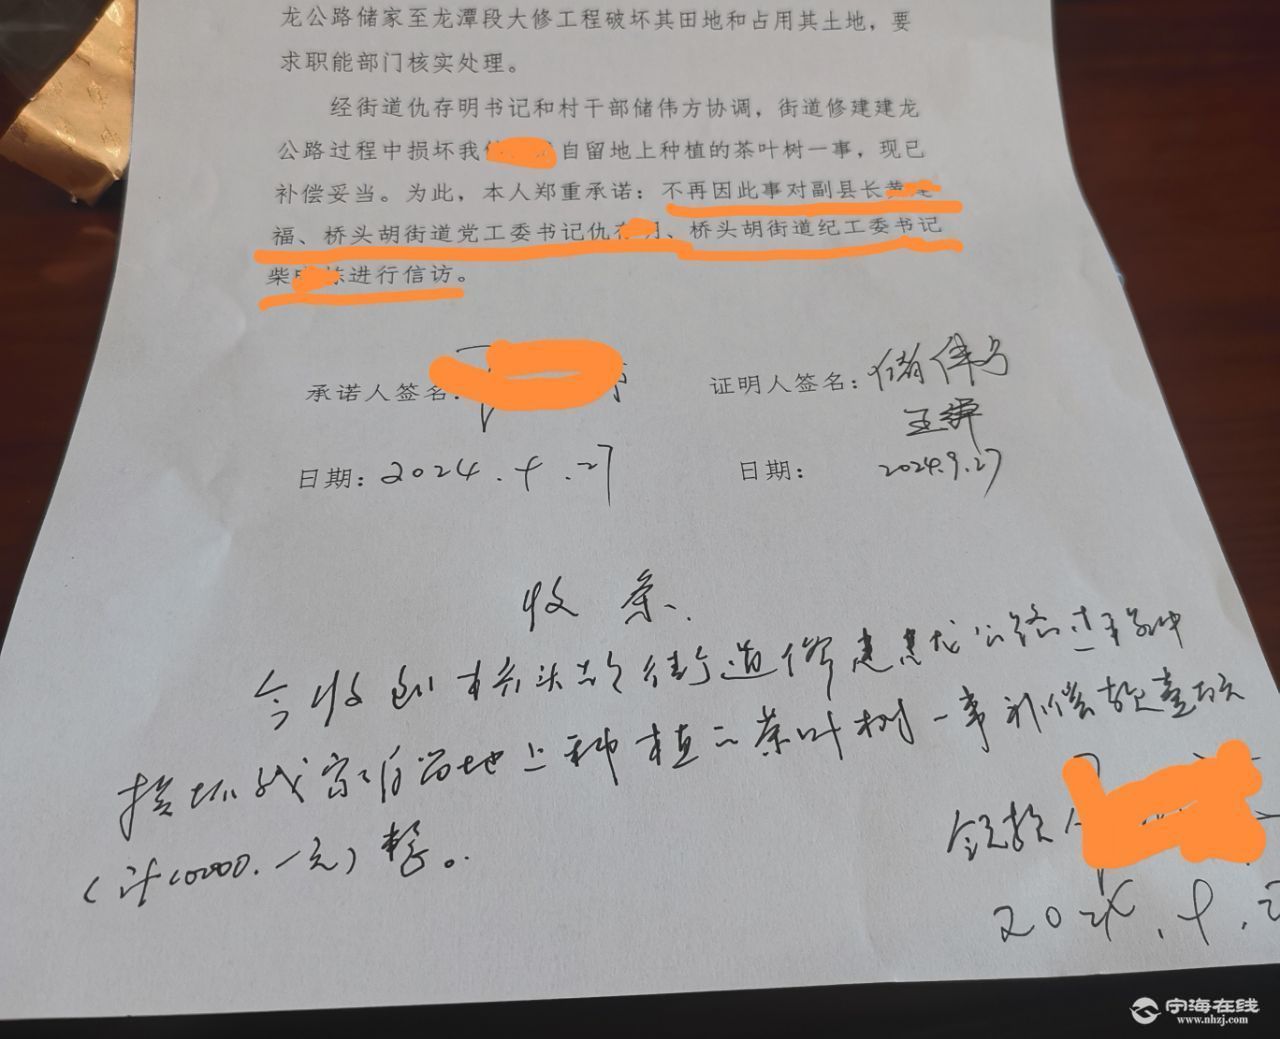 龙公路储家至龙潭段大修工程破坏其田地和占用其土地，要
求职能部门核实处理。
经街道仇存明书记和村干部储伟方协调，街道修建建龙
公路过程中损坏我 自留地上种植的茶叶树一事，现已
补偿妥当。为此，本人郑重承诺：不再因此事对副县长
福、桥头胡街道党工委书记仇 、桥头胡街道纪工委书记
柴 进行信访。
承诺人签名： 证明人签名：储伟方
王
日期：2024.9.27 日期： 2024.9.27
收条
今收到桥头胡街道修建建龙公路过程中
损坏我家自留地上种植的茶叶树一事补偿款壹万元
（计10000.一元）整。
领款人
2024.9.2
宁海在线
www.nhzj.com